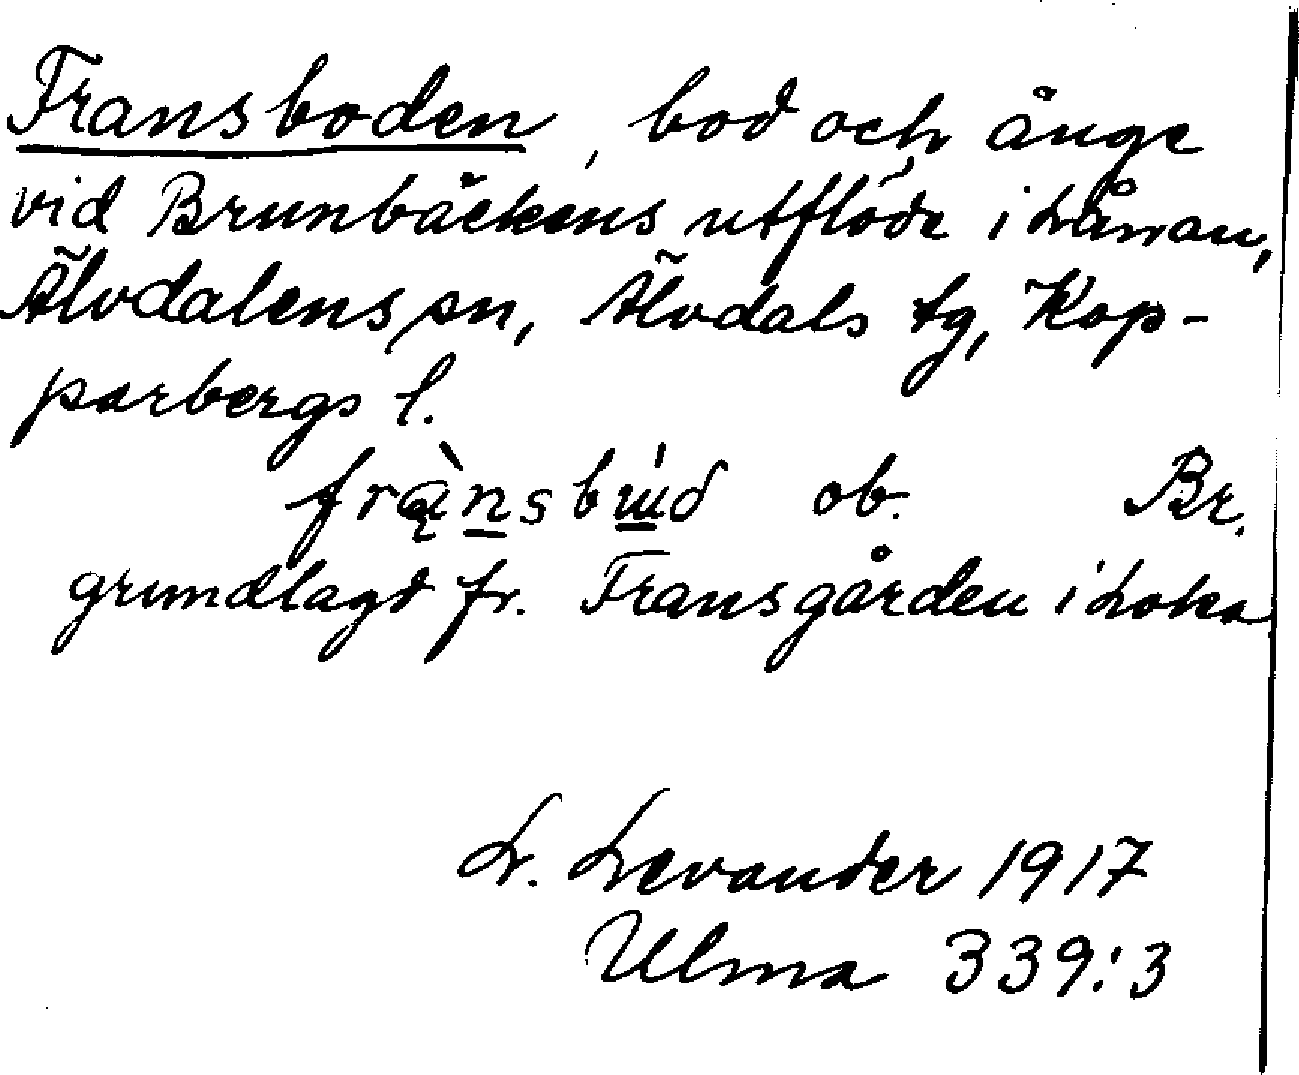 Fransboden, bod och änge
vid Brunbäckens utflöde i Låwan,
Älvdalens sn, Älvdals tg, Kop-
parbergs l.
ob. Br.
grundlagd fr. Fransgården i Loka
L. Levander 1917
Ulma 339:3